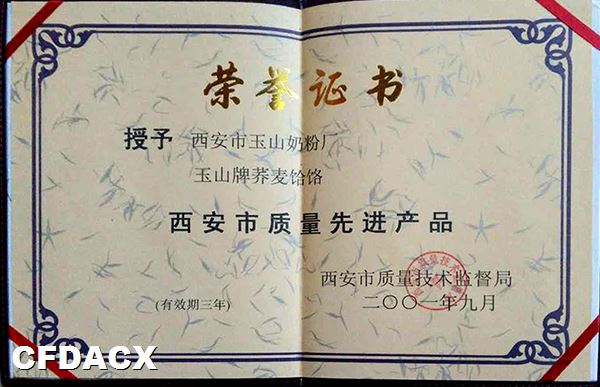 荣誉证书
授予 西安市玉山奶粉厂
玉山牌荞麦饸饹
西安市质量先进产品
西安市质量技术监督局
(有效期三年) 二〇〇一年九月
CFDACX